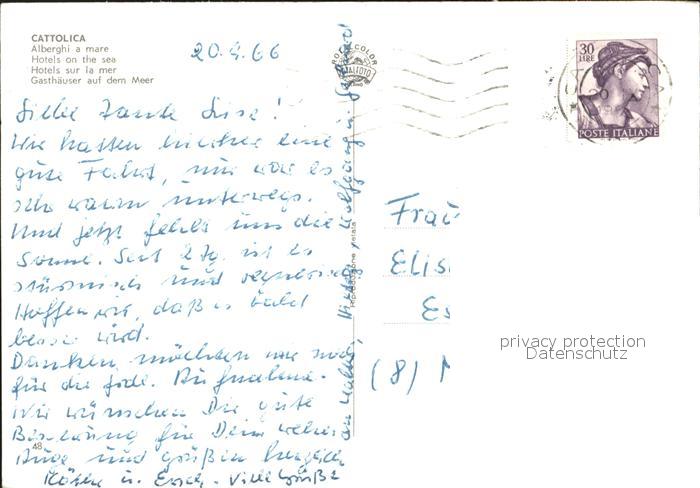 CATTOLICA
Alberghi a mare
Hotels on the sea
Hotels sur la mer
Gasthäuser auf dem Meer
20.4.66
Liebe Tante Lisa!
Wir hatten hierher eine
gute Fahrt, nur war es
sehr warm unterwegs.
Und jetzt fehlt uns die
Sonne. Seit 2 Tg. ist es
stürmisch und regnerisch
Hoffen wir, daß es bald
besser wird.
Danken möchten wir
für die frdl. Aufnahme.
Wir wünschen Dir gute
Besserung für Dein
Auge und grüßen herzlich
u. Erich. Viele Grüße
an Walter, Wolfgang
Riproduzione vietata
ROTALCOLOR
ROTALFOTO
MILANO
30
LIRE
POSTE ITALIANE
Frau
Elis
Es
(8) M
privacy protection
Datenschutz
48